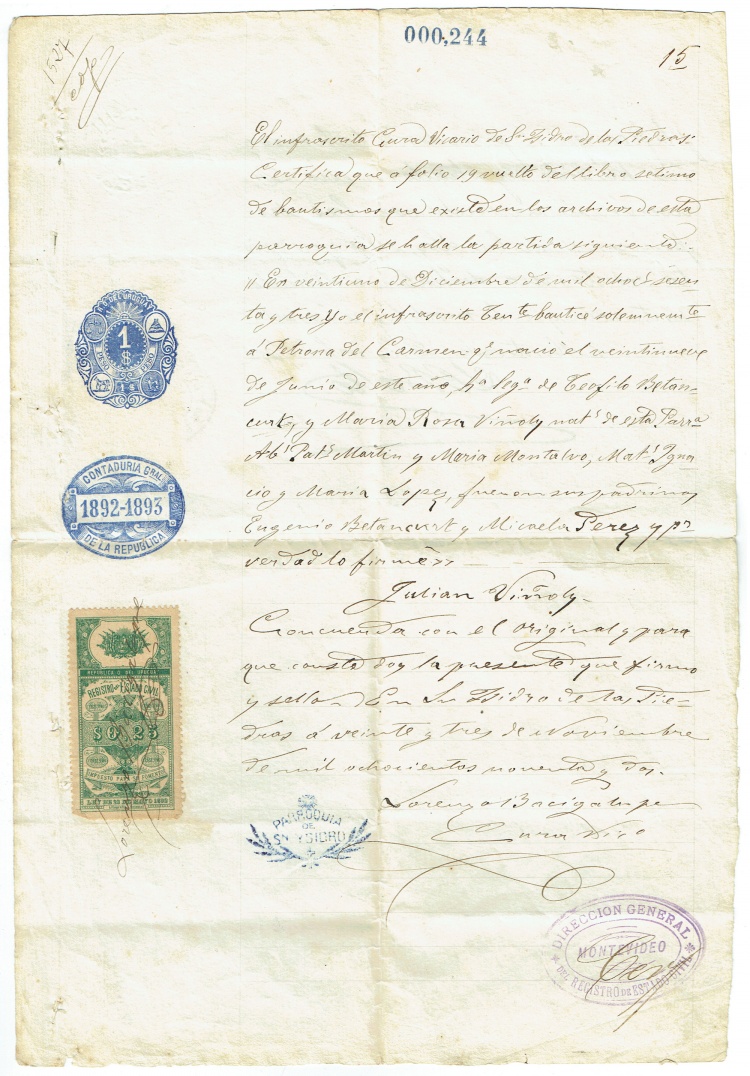 000,244
15
1527
El infrascrito Cura Vicario de Sn Isidro de las Piedras:
Certifica que á folio 19 vuelto del libro setimo
de bautismos que existe en los archivos de esta
parroquia se halla la partida siguiente:
"En veintiuno de Diciembre de mil ochocs sesen-
ta y tres Yo el infrascrito Tente bauticé solemnemte
á Petrona del Carmen qe nació el veintinueve
de Junio de este año, ha lega de Teofilo Betan-
curt, y María Rosa Viñoly nats de esta Parra
Abs Pats Martin y Maria Montalvo, Mats Igna-
cio y María Lopez, fueron sus padrinos
Eugenio Betancurt y Micaela Perez y pr
verdad lo firmé"
Julian Viñoly
Concuerda con el original y para
que conste doy la presente que firmo
y sello En Sn Isidro de las Pie-
dras á veinte y tres de Noviembre
de mil ochocientos noventa y dos.
Lorenzo Bacigalupe
Cura Vico
R. O. DEL URUGUAY
1
$
PESO PESO
1 $
CONTADURIA GRAL
1892-1893
DE LA REPÚBLICA
REPUBLICA O. DEL URUGUAY
REGISTRO DEL ESTADO CIVIL
$0.25
IMPUESTO PARA SU FOMENTO
PARROQUIA
DE
Sn YSIDRO
DIRECCION GENERAL
MONTEVIDEO
DEL REGISTRO DE ESTADO CIVIL